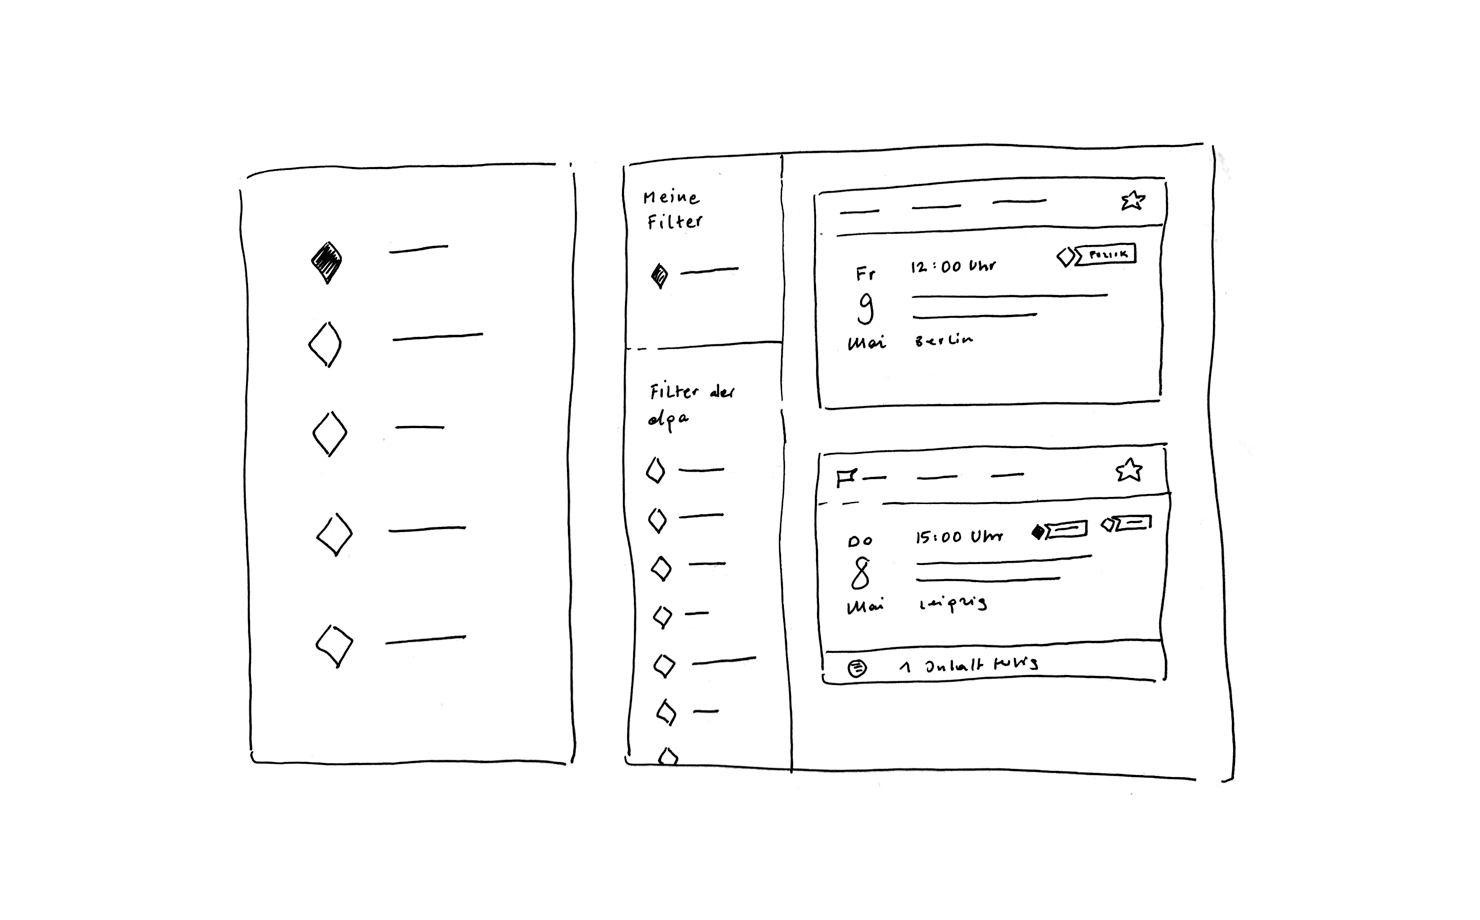 Meine
Filter
Filter der
dpa
Fr
9
Mai
12:00 Uhr
Berlin
Politik
Do
8
Mai
15:00 Uhr
Leipzig
1 Inhalt